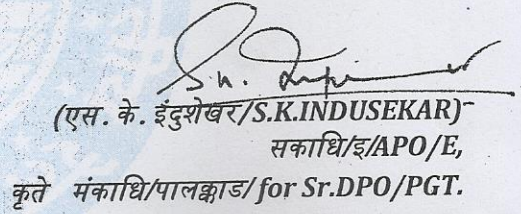 (एस. के. इंदुशेखर/S.K.INDUSEKAR)
सकाधि/इ/APO/E,
कृते मंकाधि/पालक्काड/for Sr.DPO/PGT.